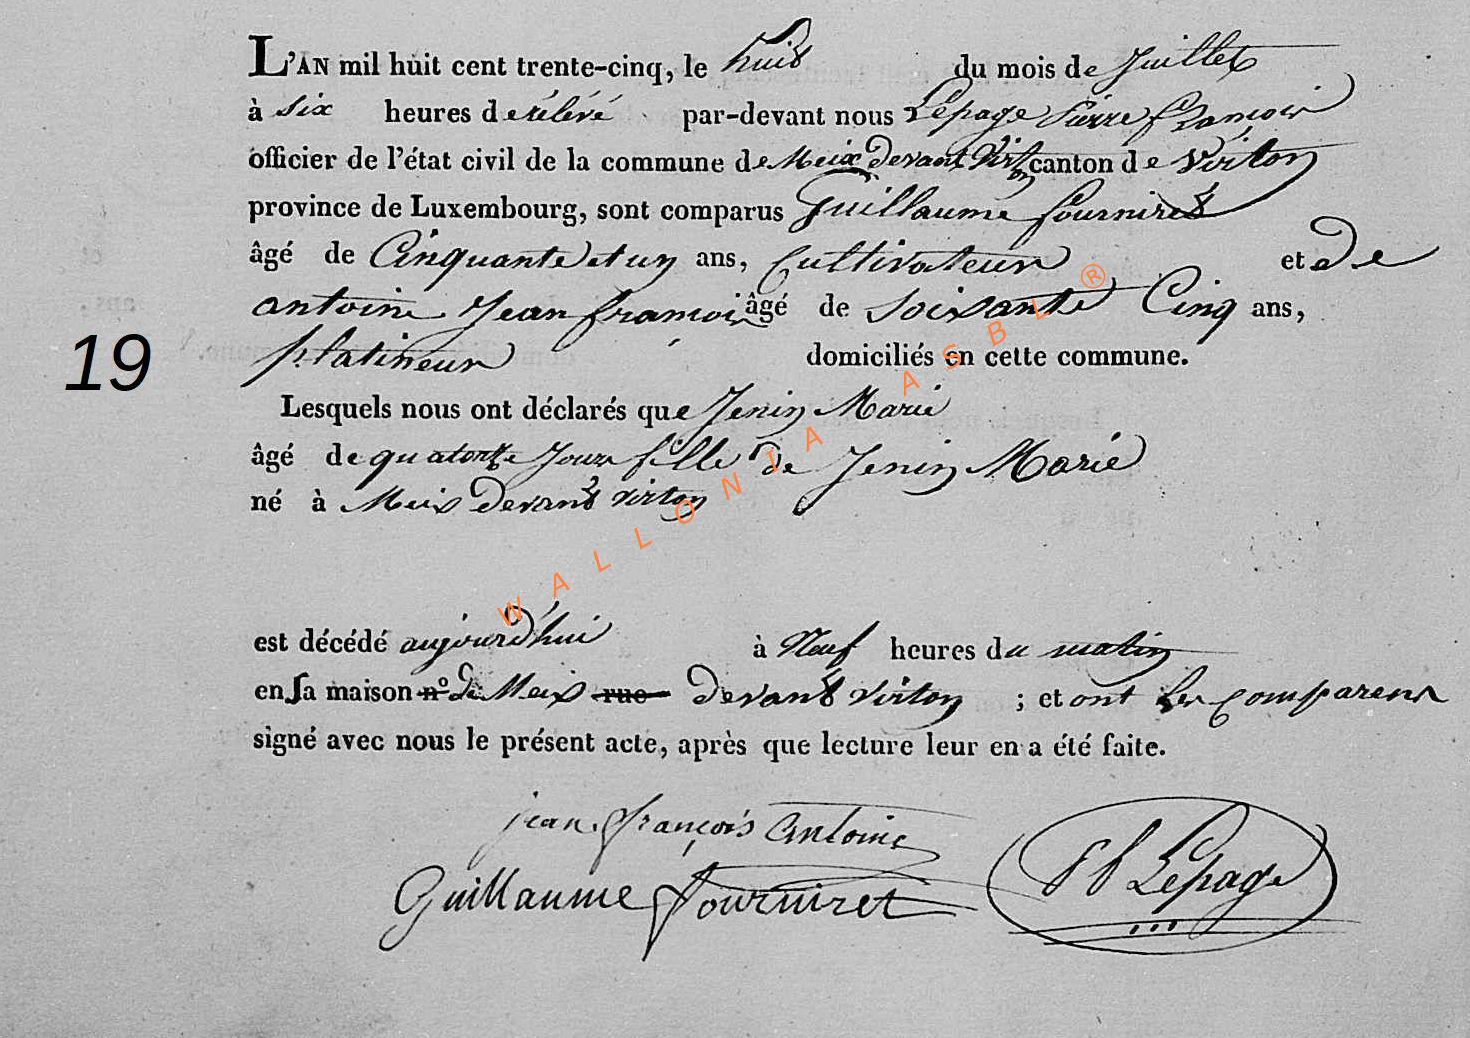 L'AN mil huit cent trente-cinq, le huit du mois de Juillet
à six heures de rélévé par-devant nous Lepage Pierre françois
officier de l'état civil de la commune de Meix devant Virton canton de Virton
province de Luxembourg, sont comparus Guillaume fourniret
âgé de Cinquante et un ans, Cultivateur et de De
antoine Jean françois âgé de soixante Cinq ans,
platineur domiciliés en cette commune.
19
Lesquels nous ont déclarés que Jenin Marie
âgé de quatorze Jours fille de Jenin Marie
né à Meix devant virton
est décédé aujourd'hui à Neuf heures du matin
en sa maison n° de Meix rue devant virton ; et ont les comparens
signé avec nous le présent acte, après que lecture leur en a été faite.
jean françois Antoine
Guillaume fourniret
Lepage
WALLONIA ASBL ®